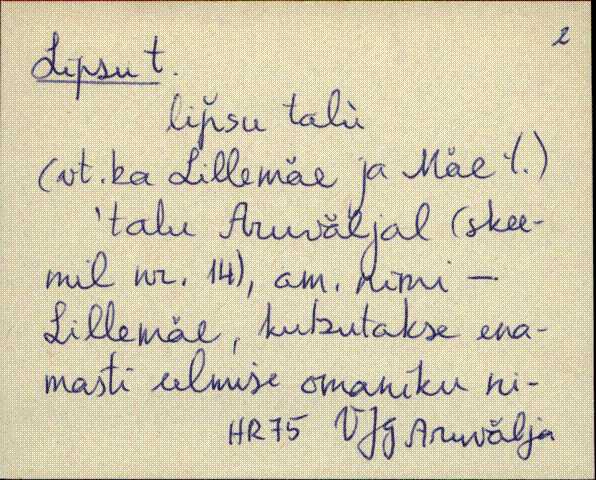 2
Lipsu t.
lip̆su talù
(vt. ka Lillemäe ja Mäe t.)
'talu Aruväljal (skee-
mil nr. 14), am. nimi —
Lillemäe, kutsutakse ena-
masti eelmise omaniku ni-
HR75 VJg Aruvälja